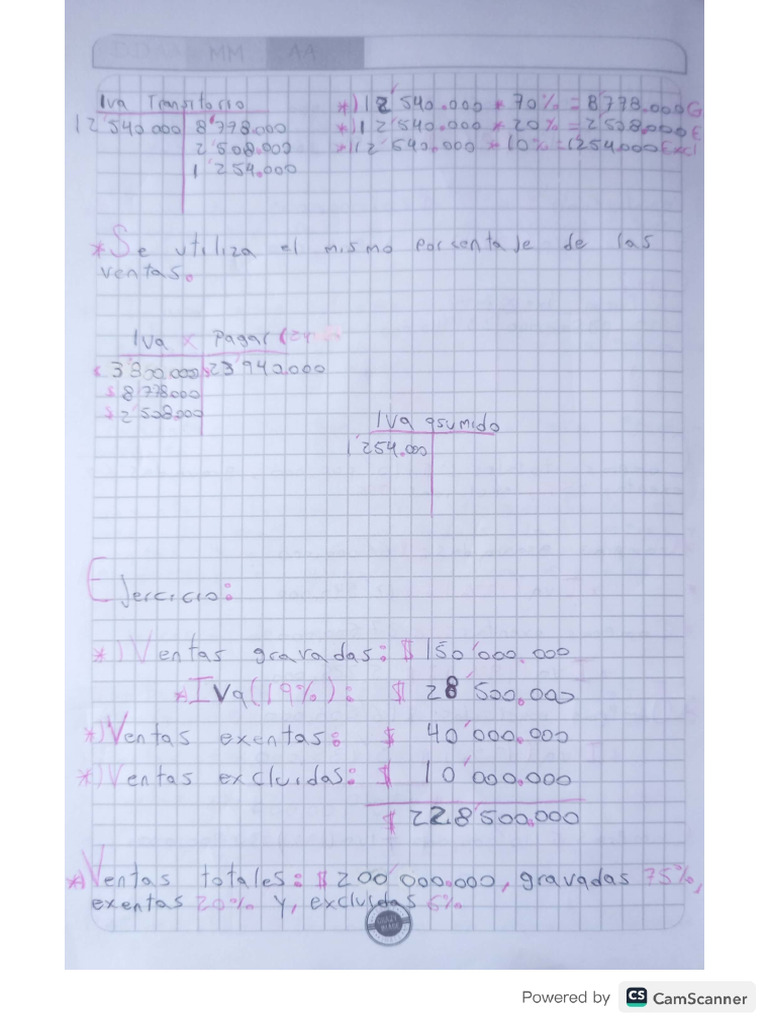 DD MM AA
Iva Transitorio
12'540000 8'778.000
2'508.000
1'254.000
*) 12'540.000 * 70% = 8'778.000 G
*) 12'540.000 * 20% = 2'508.000 E
*) 12'540.000 * 10% = 1'254.000 Excl
* Se utiliza el mismo porsentaje de las
ventas.
Iva x Pagar
$ 3'800.000 $ 23'940.000
$ 8'778000
$ 2'508.000
IVa asumido
1'254.000
Ejercicio:
*) Ventas gravadas: $ 150'000.000
* IVa (19%): $ 28'500.000
*) Ventas exentas: $ 40'000.000
*) Ventas excluidas: $ 10'000.000
$ 228'500.000
* Ventas totales: $ 200'000.000, gravadas 75%,
exentas 20% y, excluidas 5%.
Powered by CS CamScanner